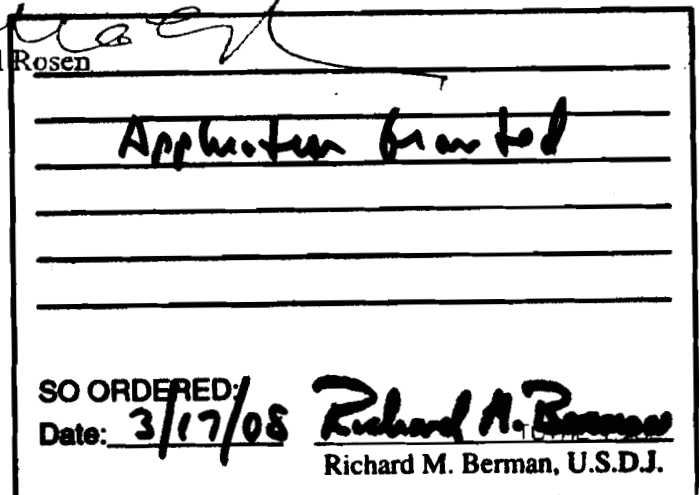 Rosen
Application Granted
SO ORDERED:
Date: 3/17/08 Richard M. Berman
Richard M. Berman, U.S.D.J.